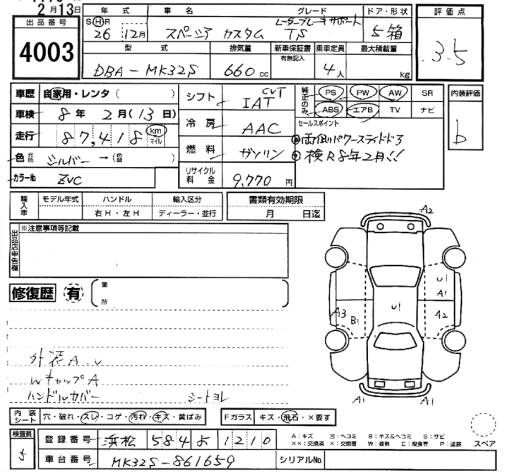 2月13日
出品番号 4003
年式 車名 グレード ドア・形状 評価点
SHR 26年12月 スペーシア カスタム レーダーブレーキサポート TS 5箱 3.5
型式 排気量 新車保証書 有無記入 乗車定員 最大積載量
DBA-MK32S 660cc 4人 kg
車歴 自家用・レンタ( )
車検 8年2月(13日)
走行 87,418 km マイル
色 シルバー→( )
カラーNo ZVC
シフト CVT IAT
冷房 AAC
燃料 ガソリン
リサイクル料金 9,770円
純正のみ PS PW AW SR
ABS エアB TV ナビ
セールスポイント
両側パワースライドドア
検R8年2月!!
内装評価 D
輸入車 モデル年式 ハンドル 輸入区分
右H・左H ディーラー・並行
書類有効期限 月 日迄
※注意事項等記載
修復歴 有 箇所
外装A.U
WキャップA
ハンドルカバー シートヨレ
A2 U1 A1 U1 A3 B1 A2 A1 A1
内装シート 穴・破れ・スレ・コゲ・汚れ・キズ・黄ばみ
Fガラス キズ・飛石・×要す
検査員 登録番号 浜松 584 よ 1210
車台番号 MK32S-861659 シリアルNo.
A:キズ U:ヘコミ B:キズ&ヘコミ S:サビ
スペア